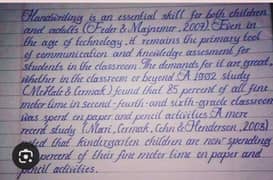 Handwriting is an essential skill for both children
and adults (Feder & Majnemer, 2007). Even in
the age of technology, it remains the primary tool
of communication and knowledge assessment for
students in the classroom. The demands for it are great,
whether in the classroom or beyond. A 1992 study
(McHale & Cermak) found that 85 percent of all fine
motor time in second-fourth-and sixth-grade classrooms
was spent on paper and pencil activities. A more
recent study (Marr, Cermak, Cohn & Henderson, 2003)
noted that kindergarten children are now spending
percent of their fine motor time on paper and
pencil activities.